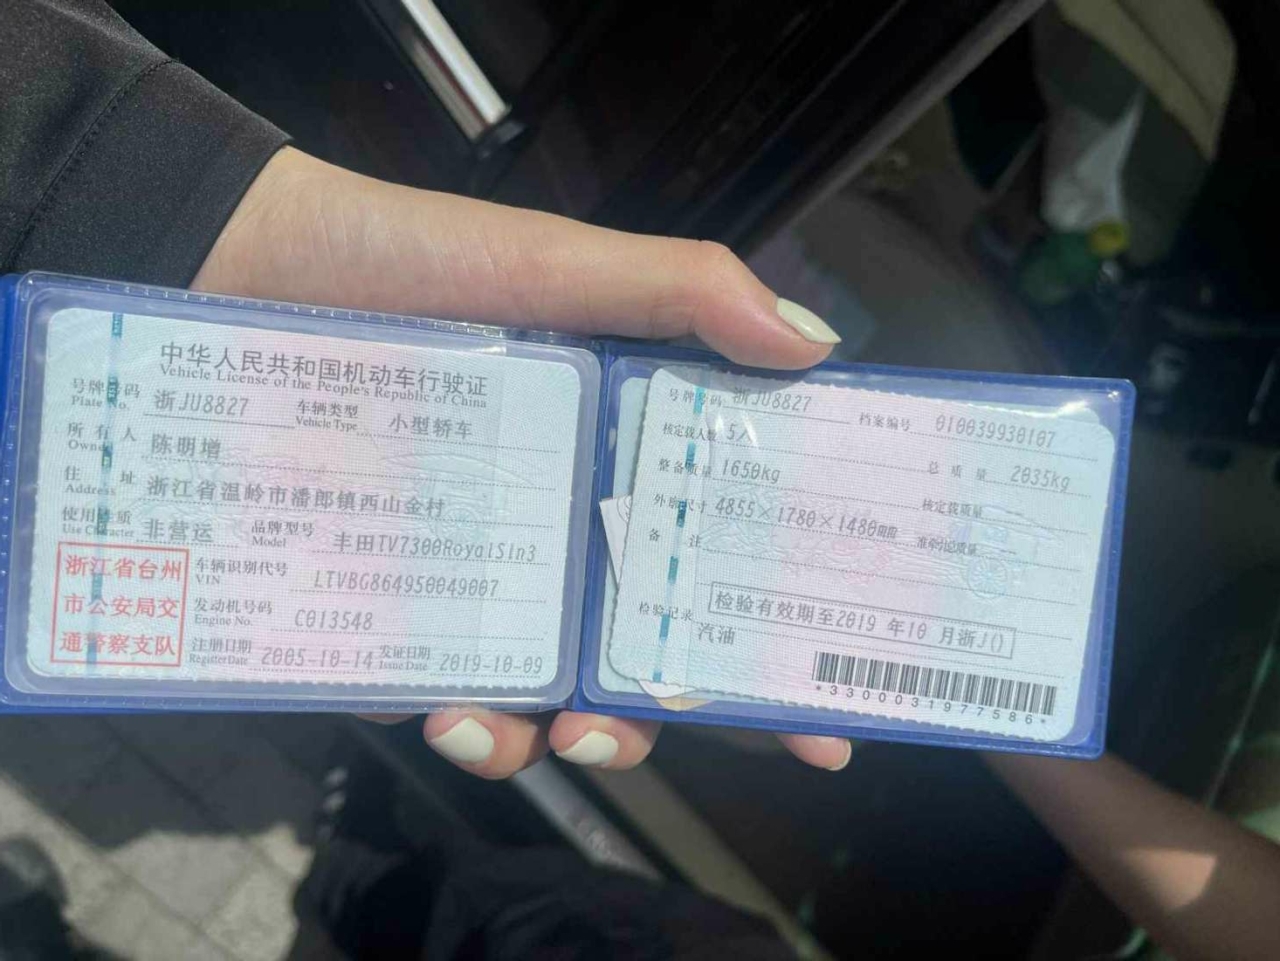 中华人民共和国机动车行驶证
Vehicle License of the People's Republic of China
号牌号码 Plate No. 浙JU8827 车辆类型 Vehicle Type 小型轿车
所有人 Owner 陈明增
住址 Address 浙江省温岭市潘郎镇西山金村
使用性质 Use Character 非营运 品牌型号 Model 丰田TV7300RoyalSln3
浙江省台州
市公安局交
通警察支队
车辆识别代号 VIN LTVBG864950049007
发动机号码 Engine No. C013548
注册日期 Register Date 2005-10-14 发证日期 Issue Date 2019-10-09
号牌号码 浙JU8827 档案编号 010039930107
核定载人数 5人 总质量 2035kg
整备质量 1650kg 核定载质量
外廓尺寸 4855×1780×1480mm 准牵引总质量
备注
检验记录 检验有效期至2019 年10 月浙J()
汽油
*3300031977586*